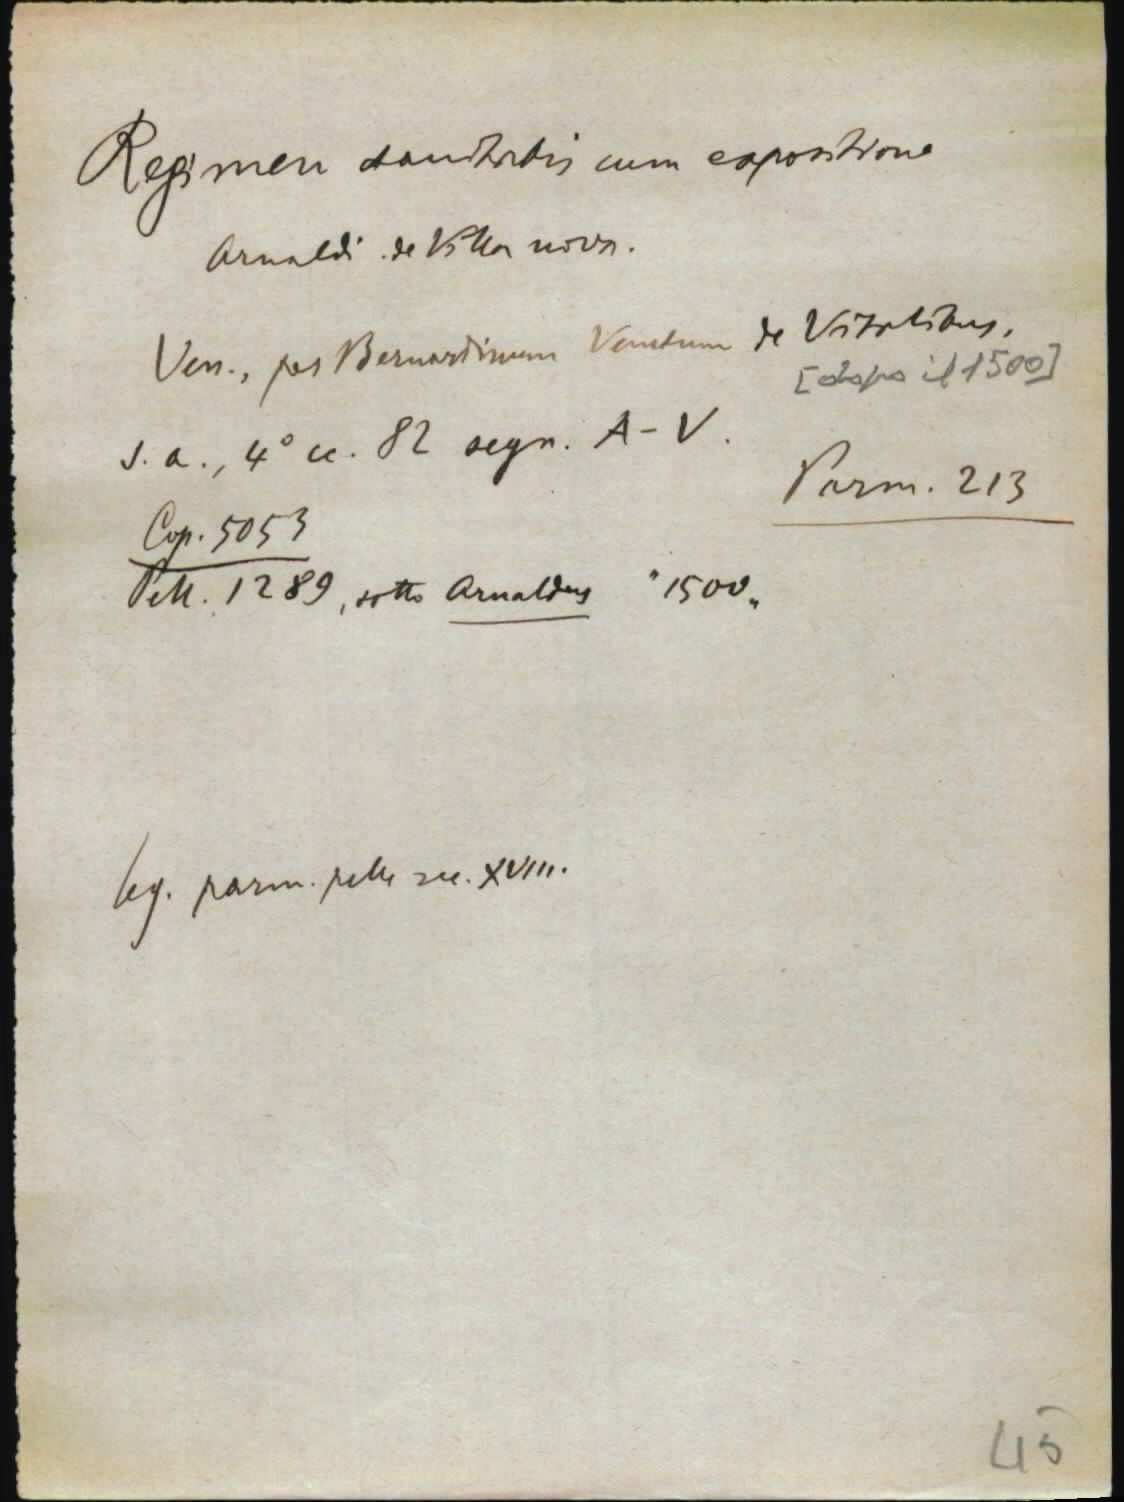 Regimen sanitatis cum expositione
Arnaldi de Villa nova.
Ven., per Bernardinum Venetum de Vitalibus,
[dopo il 1500]
s. a., 4° cc. 82 segn. A-V.
Parm. 213
Cop. 5053
Pell. 1289, sotto Arnaldus "1500„
leg. parm. pelle sec. XVIII.
45